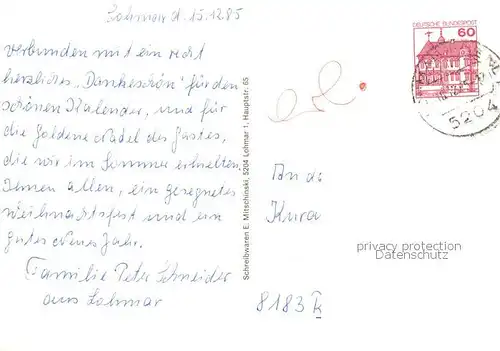 Lohmar d. 15.12.85
verbunden mit ein recht
herzliches "Dankeschön" für den
schönen Kalender, und für
die Goldene Nadel des Gastes,
die wir im Sommer erhielten.
Ihnen allen, ein gesegnetes
Weihnachtsfest und ein
gutes Neues Jahr.
Familie Peter Schneider
aus Lohmar
Schreibwaren E. Mitschinski, 5204 Lohmar 1, Hauptstr. 65
DEUTSCHE BUNDESPOST
60
5204
An d
Kura
privacy protection
Datenschutz
8183 R